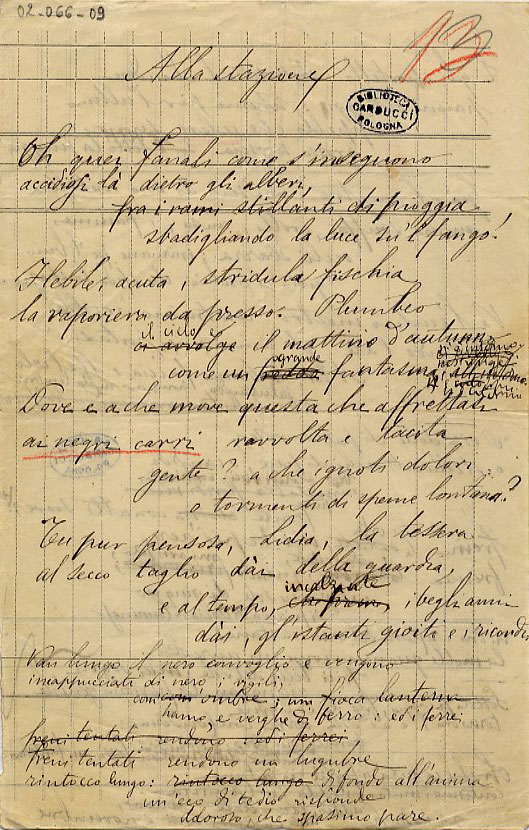 02-066-09
13
Alla stazione
BIBLIOTECA
CARDUCCI
BOLOGNA
Oh quei fanali come s'inseguono
accidiosi là dietro gli alberi,
fra i rami stillanti di pioggia
sbadigliando la luce su 'l fango!
Flebile, acuta, stridula fischia
la vaporiera da presso. Plumbeo
il cielo
avvolge il mattino d'autunno
grande
come un fantasma
Dove e a che move questa che affrettasi
ai negri carri ravvolta e tacita
gente? a che ignoti dolori
o tormenti di speme lontana?
Tu pur pensosa, Lidia, la tessera
al secco taglio dài della guardia,
incalzante
e al tempo, i begli anni
dài, gl'istanti gioiti e i ricordi.
Van lungo il nero convoglio e vengono
incappucciati di nero i vigili,
com ombre; una fioca lanterna
hanno, e verghe di ferro: ed i ferrei
freni tentati rendono: ed i ferrei
freni tentati rendono un lugubre
rintocco lungo: rintocco lungo di fondo all'anima
un'eco di tedio risponde
doloroso, che spasimo pare.